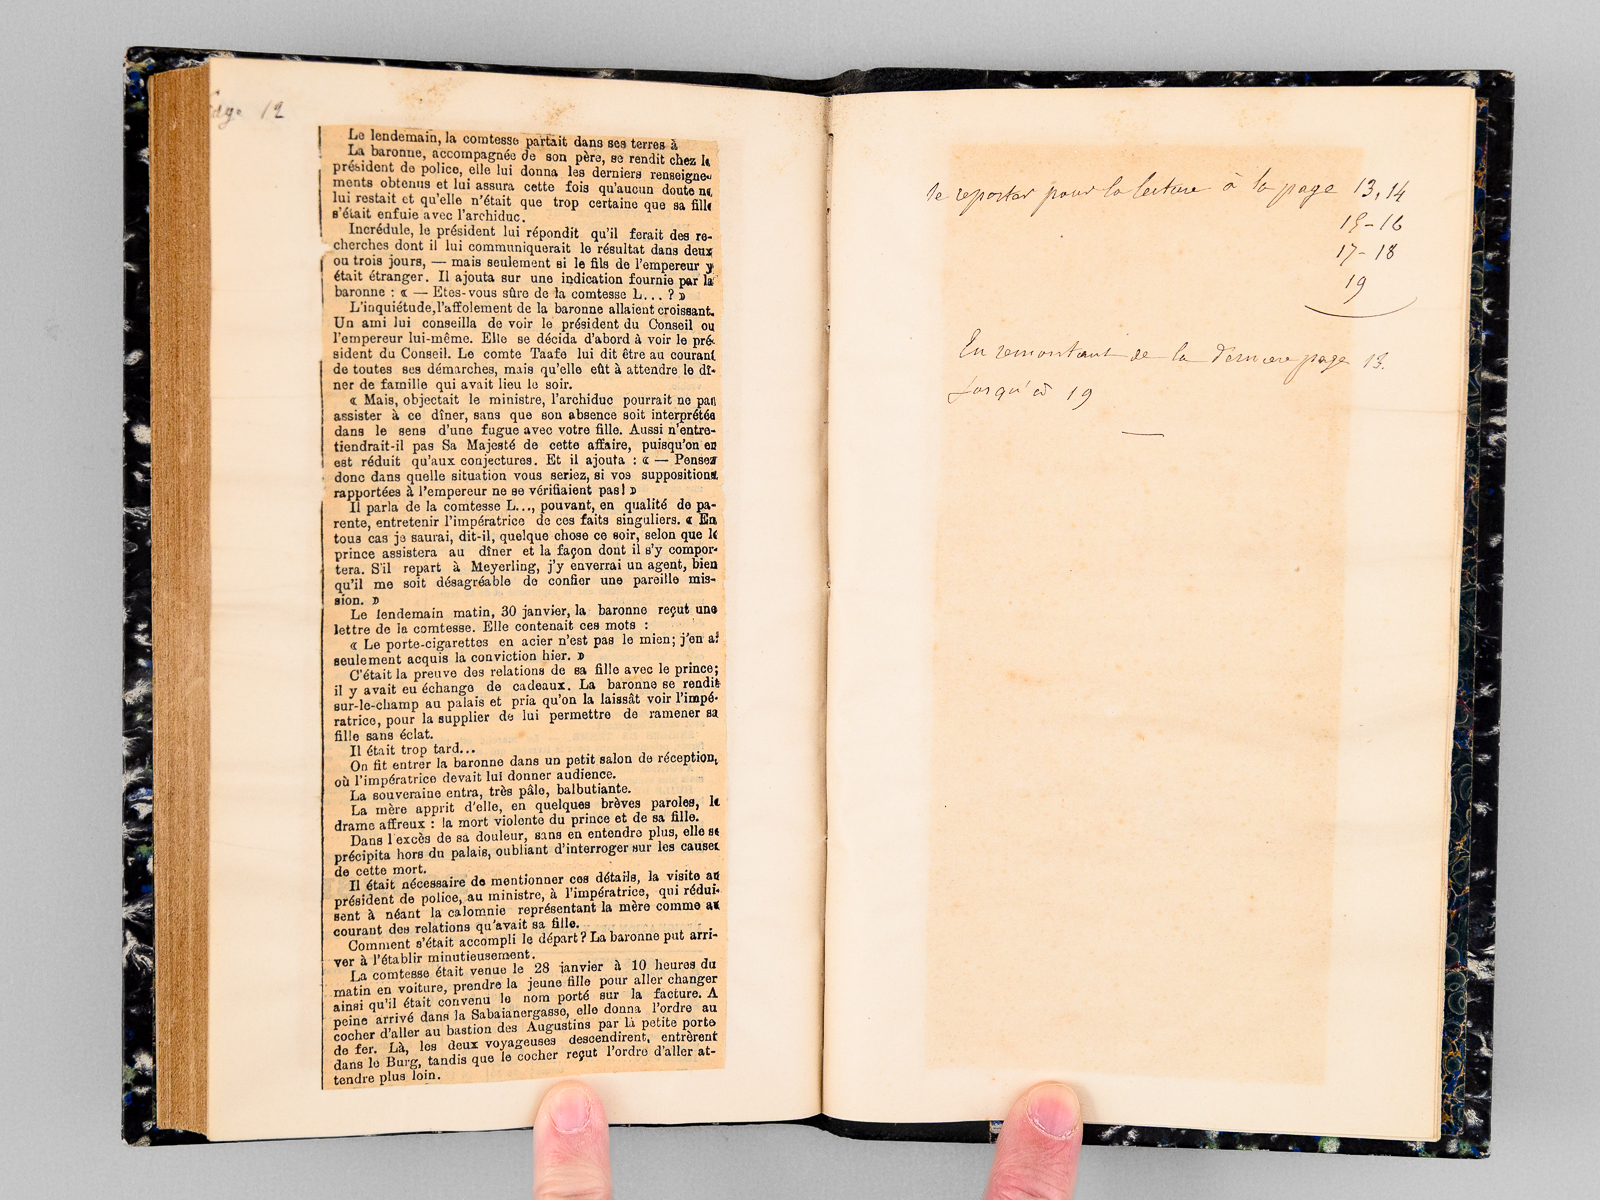 Page 12
Le lendemain, la comtesse partait dans ses terres à
La baronne, accompagnée de son père, se rendit chez le
président de police, elle lui donna les derniers renseigne-
ments obtenus et lui assura cette fois qu'aucun doute ne
lui restait et qu'elle n'était que trop certaine que sa fille
s'était enfuie avec l'archiduc.
Incrédule, le président lui répondit qu'il ferait des re-
cherches dont il lui communiquerait le résultat dans deux
ou trois jours, — mais seulement si le fils de l'empereur y
était étranger. Il ajouta sur une indication fournie par la
baronne : « — Etes-vous sûre de la comtesse L...? »
L'inquiétude, l'affolement de la baronne allaient croissant.
Un ami lui conseilla de voir le président du Conseil ou
l'empereur lui-même. Elle se décida d'abord à voir le pré-
sident du Conseil. Le comte Taafe lui dit être au courant
de toutes ses démarches, mais qu'elle eût à attendre le dî-
ner de famille qui avait lieu le soir.
« Mais, objectait le ministre, l'archiduc pourrait ne pas
assister à ce dîner, sans que son absence soit interprétée
dans le sens d'une fugue avec votre fille. Aussi n'entre-
tiendrait-il pas Sa Majesté de cette affaire, puisqu'on en
est réduit qu'aux conjectures. Et il ajouta : « — Pensez
donc dans quelle situation vous seriez, si vos suppositions
rapportées à l'empereur ne se vérifiaient pas! »
Il parla de la comtesse L..., pouvant, en qualité de pa-
rente, entretenir l'impératrice de ces faits singuliers. « En
tous cas je saurai, dit-il, quelque chose ce soir, selon que le
prince assistera au dîner et la façon dont il s'y compor-
tera. S'il repart à Meyerling, j'y enverrai un agent, bien
qu'il me soit désagréable de confier une pareille mis-
sion. »
Le lendemain matin, 30 janvier, la baronne reçut une
lettre de la comtesse. Elle contenait ces mots :
« Le porte-cigarettes en acier n'est pas le mien; j'en ai
seulement acquis la conviction hier. »
C'était la preuve des relations de sa fille avec le prince;
il y avait eu échange de cadeaux. La baronne se rendit
sur-le-champ au palais et pria qu'on la laissât voir l'impé-
ratrice, pour la supplier de lui permettre de ramener sa
fille sans éclat.
Il était trop tard...
On fit entrer la baronne dans un petit salon de réception,
où l'impératrice devait lui donner audience.
La souveraine entra, très pâle, balbutiante.
La mère apprit d'elle, en quelques brèves paroles, le
drame affreux : la mort violente du prince et de sa fille.
Dans l'excès de sa douleur, sans en entendre plus, elle se
précipita hors du palais, oubliant d'interroger sur les causes
de cette mort.
Il était nécessaire de mentionner ces détails, la visite au
président de police, au ministre, à l'impératrice, qui rédui-
sent à néant la calomnie représentant la mère comme au
courant des relations qu'avait sa fille.
Comment s'était accompli le départ? La baronne put arri-
ver à l'établir minutieusement.
La comtesse était venue le 28 janvier à 10 heures du
matin en voiture, prendre la jeune fille pour aller changer
ainsi qu'il était convenu le nom porté sur la facture. A
peine arrivé dans la Sabaianergasse, elle donna l'ordre au
cocher d'aller au bastion des Augustins par la petite porte
de fer. Là, les deux voyageuses descendirent, entrèrent
dans le Burg, tandis que le cocher reçut l'ordre d'aller at-
tendre plus loin.
Se reporter pour la lecture à la page 13, 14
15-16
17-18
19
En remontant de la dernière page 13.
Jusqu'à 19